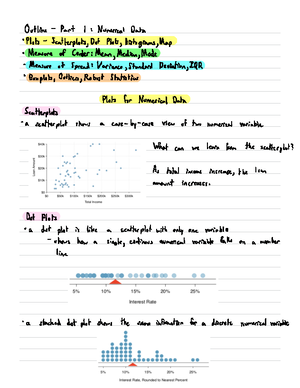 Outline - Part 1: Numerical Data
• Plots - Scatterplots, Dot Plots, Histograms, Map
• Measure of Center: Mean, Median, Mode
- Measure of Spread: Variance, Standard Deviation, IQR
• Boxplots, Outliers, Robust Statistics
Plots for Numerical Data
Scatterplots
• a scatterplot shows a case-by-case view of two numerical variable
What can we learn from the scatterplot?
As total income increases, the loan
amount increases.
Loan Amount
$40k
$30k
$20k
$10k
$0
$0
$50k
$100k
$150k
$200k
$250k
$300k
Total Income
Dot Plots
• a dot plot is like a scatterplot with only one variable
- shows how a single, continous numerical variable falls on a number
line
5%
10%
15%
20%
25%
Interest Rate
• a stacked dot plot shows the same information for a discrete numerical variable
5%
10%
15%
20%
25%
Interest Rate, Rounded to Nearest Percent